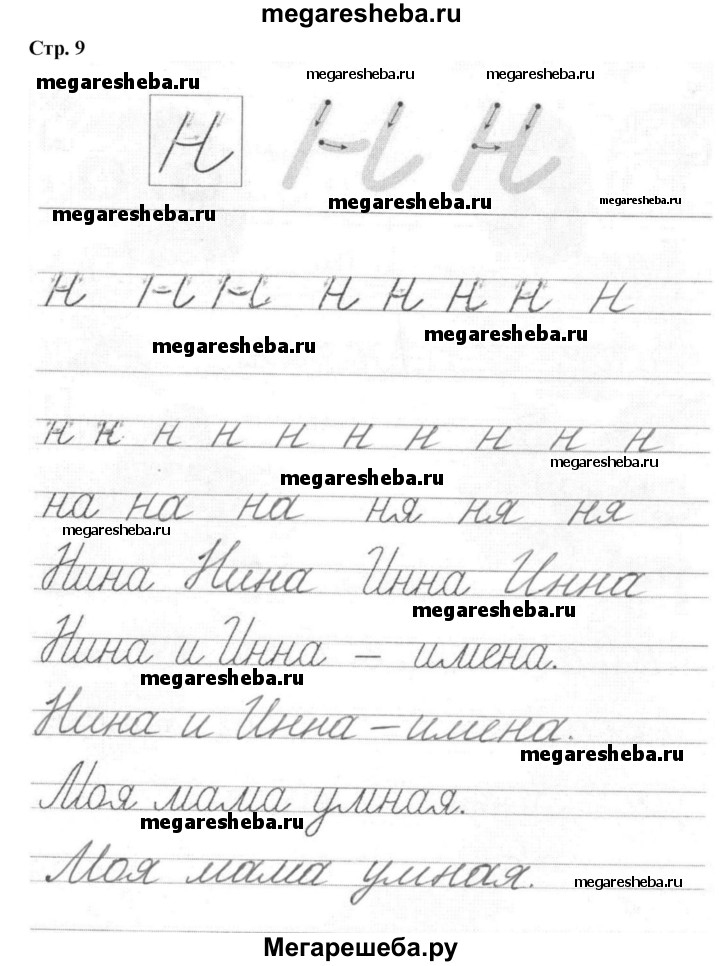 megaresheba.ru
Стр. 9
megaresheba.ru megaresheba.ru megaresheba.ru
н н н
megaresheba.ru megaresheba.ru megaresheba.ru
н н н н н н н н
megaresheba.ru megaresheba.ru
н н н н н н н н н н
megaresheba.ru megaresheba.ru
на на на ня ня ня
megaresheba.ru
Нина Нина Инна Инна
megaresheba.ru
Нина и Инна – имена.
megaresheba.ru
Нина и Инна – имена.
megaresheba.ru
Моя мама умная.
megaresheba.ru
Моя мама умная.
megaresheba.ru
Мегарешеба.ру